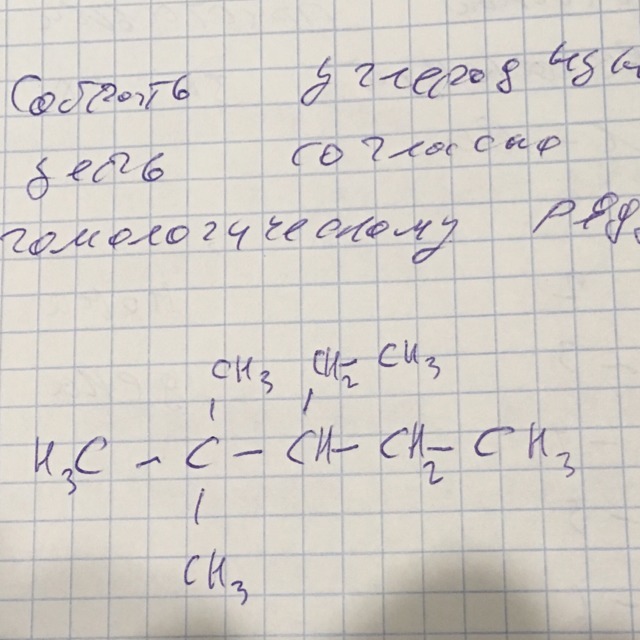 Собрать углерод
цепь согласно
гомологическому
CH3 CH2- CH3
H3C - C - CH- CH2- CH3
CH3